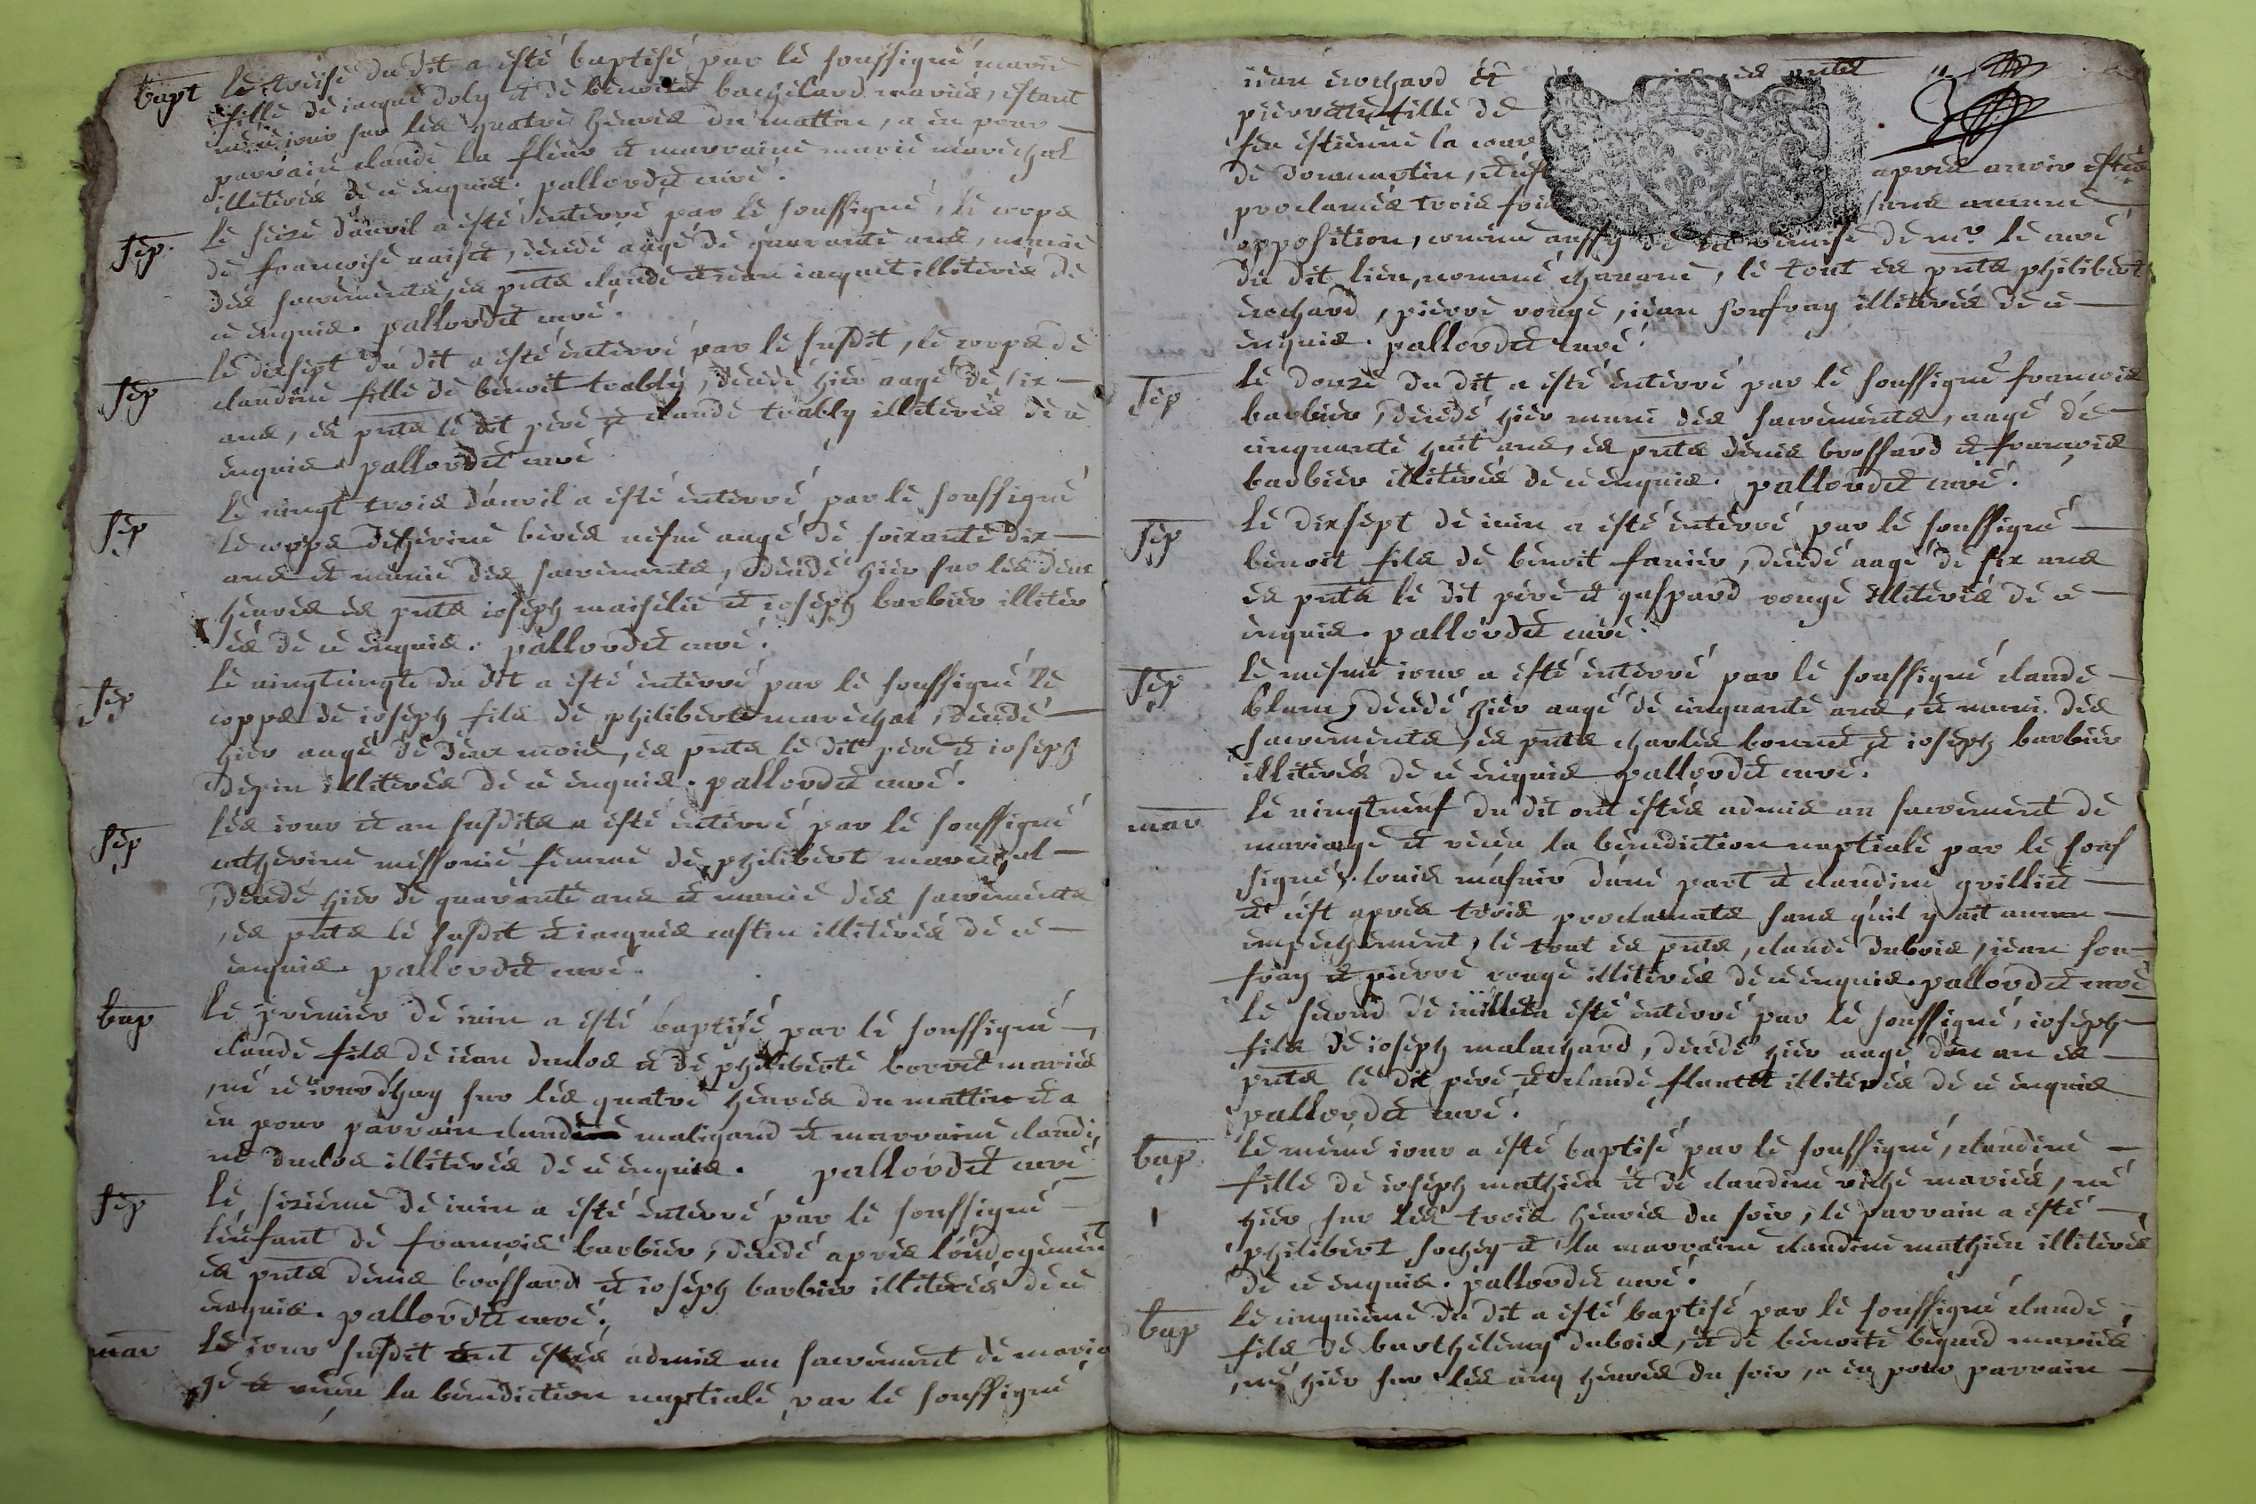 bapt le treise du dit a esté baptisé par le soussigné marie
fille de iaque doly et de benoite bachelard mariés, estant
née iour sur les quatre heures du mattin, a eu pour
parrain claude la fleur et marraine marie marechal
illiterés de ce enquis. pallordet curé.
sep. le seize d'auvil a esté enterré par le soussigné, le corps
de francoise naistt, decedé aagé de quarante ans, munie
des sacrements, es pnts claude et iean iaquet illiterés de
ce enquis. pallordet curé.
sep le dixsept du dit a esté enterré par le susdit, le corps de
claudine fille de benoit trably, decedé hier aagé de six
ans, es pnts le dit pere et claude trably illiterés de ce
enquis. pallordet curé
sep le vingt trois d'auvil a esté enterré par le soussigné
le corps aagé de soixante dix
ans et munie des sacrements, decedé hier sur les deux
heures es pnts ioseph maiselié et ioseph barbier illiter
és de ce enquis. pallordet curé.
sep le du dit a esté enterré par le soussigné le
copps de ioseph fils de philiberte marechal, decedé
hier aagé de deux mois, es pnts le dit pere et ioseph
dezin illiterés de ce enquis. pallordet curé.
sep les iour et an susdits a esté enterré par le soussigné
catherine messonié femme de philibert marechal
decedé hier de quarante ans et munie des sacrements
es pnts le susdit et iaques illiterés de ce
enquis. pallordet curé.
bap le premier de iuin a esté baptisé par le soussigné
claude fils de iean duclos et de philiberte borret mariés
né ce iourdhuy sur les quatre heures du mattin et a
eu pour parrain claude maligand et marraine claudi
ne duclos illiterés de ce enquis. pallordet curé
sep le sixieme de iuin a esté enterré par le soussigné
l'enfant de francois barbier, decedé apres l'ondoyement
es pnts denis brossard et ioseph barbier illiterés de ce
enquis. pallordet curé.
mar le iour susdit ont estés admis au sacrement de maria
ge et receu la benediction nuptiale par le soussigné
iean crochard et pnts
pierrette fille de
feu estienne la cour
de dommartin, et c'est apres auvoir estés
proclamés trois fois sans aucune
opposition, comme aussy de la remise de mr. le curé
du dit lieu, nommé charane, le tout es pnts philibert
crochard, pierre rouge, iean sonfray illiterés de ce
enquis. pallordet curé.
sep le douze du dit a esté enterré par le soussigné francois
barbier, decedé hier muni des sacrements, aagé de
cinquante huit ans, es pnts denis brossard et francois
barbier illiterés de ce enquis. pallordet curé.
sep le dixsept de iuin a esté enterré par le soussigné
benoit fils de benoit farier, decedé aagé de six ans
es pnts le dit pere et gaspard rouge illiterés de ce
enquis. pallordet curé.
sep le mesme iour a esté enterré par le soussigné claude
blanc, decedé hier aagé de cinquante ans, et muni des
sacrements, es pnts charles bonnet et ioseph barbier
illiterés de ce enquis pallordet curé.
mar le vingtneuf du dit ont estés admis au sacrement de
mariage et receu la benediction nuptiale par le sous
signé, louis masuir d'une part et claudine grilliet
et c'est apres trois proclamats sans qu'il y ait aucun
empechement, le tout es pnts, claude dubois, iean son
fray et pierre rouge illiterés de ce enquis. pallordet curé
le second de iuillet a esté enterré par le soussigné, ioseph
fils de ioseph malachard, decedé hier aagé d'un an es
pnts le dit pere et claude flantet illiterés de ce enquis
pallordet curé.
bap le meme iour a esté baptisé par le soussigné, claudine
fille de ioseph mathieu et de claudine riche mariés, né
hier sur les trois heures du soir, le parrain a esté
philibert sochey et la marraine claudine mathieu illiterés
de ce enquis. pallordet curé.
bap le cinquieme du dit a esté baptisé par le soussigné claude
fils de barthelemy dubois, et de benoite bigard mariés
né hier sur les cinq heures du soir, a eu pour parrain